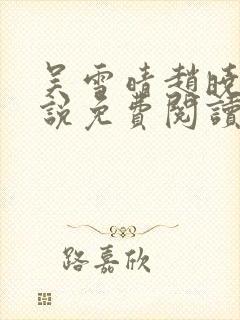 吴雪晴趙曉
説免費閱讀
路嘉欣